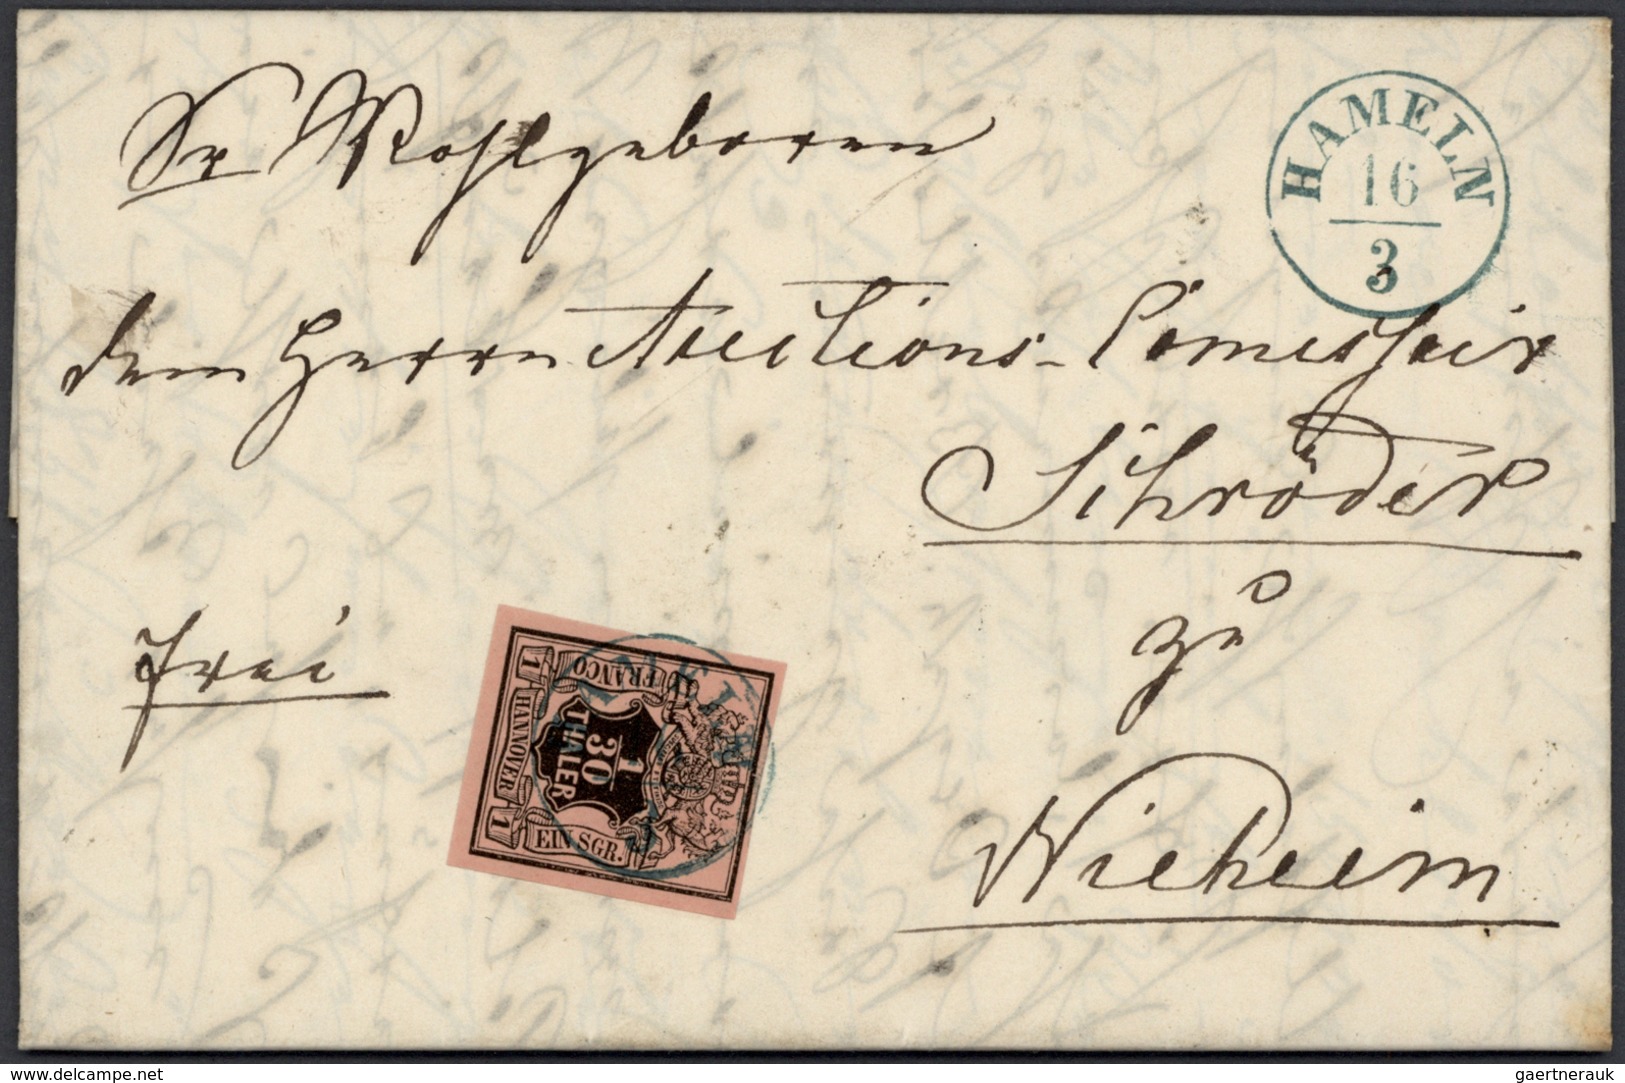 Sr Wohlgeboren
HAMELN
16
3
dem Herrn Auctions-Comissair
Schröder
zu
Nieheim
frei
FRANCO
1
HANNOVER
1
1
30
THALER
EIN SGR.
www.delcampe.net
gaertnerauk